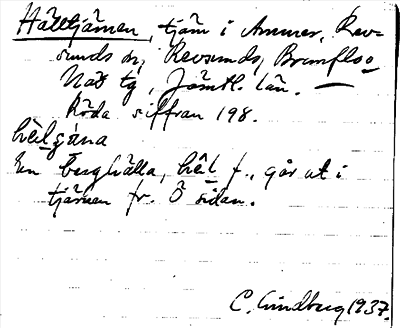 Hälltjärnen, tjärn i Ammer, Rev-
sunds sn, Revsunds, Brunflo o
Näs tg, Jämtl. län. —
Röda siffran 198.
hêlgána
En berghälla, hêl f., går ut i
tjärnen fr. Ö sidan.
C. Lindberg 1937.